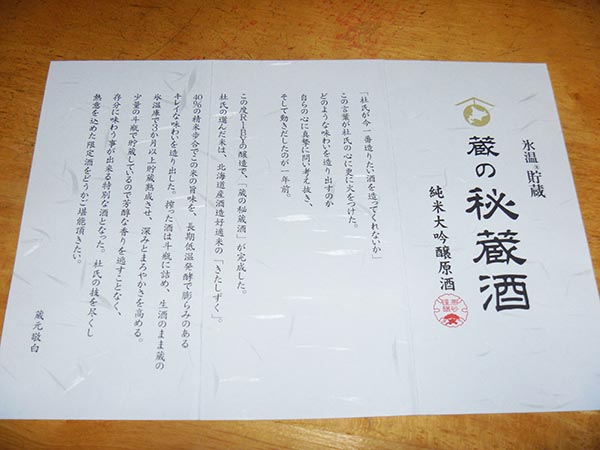 氷温®貯蔵
蔵の秘蔵酒
純米大吟醸原酒
「杜氏が今一番造りたい酒を造ってくれないか」
この言葉が杜氏の心に更に火をつけた。
どのような味わいを造り出すのか
自らの心に真摯に問い考え抜き、
そして動きだしたのが一年前。
この度R1BYの醸造で、「蔵の秘蔵酒」が完成した。
杜氏の選んだ米は、北海道産酒造好適米の「きたしずく」。
40%の精米歩合でこの米の旨味を、長期低温発酵で膨らみのある
キレイな味わいを造り出した。搾った酒は斗瓶に詰め、生酒のまま蔵の
氷温庫で3か月以上貯蔵熟成させ、深みとまろやかさを高める。
少量の斗瓶で貯蔵しているので芳醇な香りを逃すことなく、
存分に味わう事が出来る特別な酒となった。杜氏の技を尽くし
熱意を込めた限定酒をどうかご堪能頂きたい。
蔵元敬白